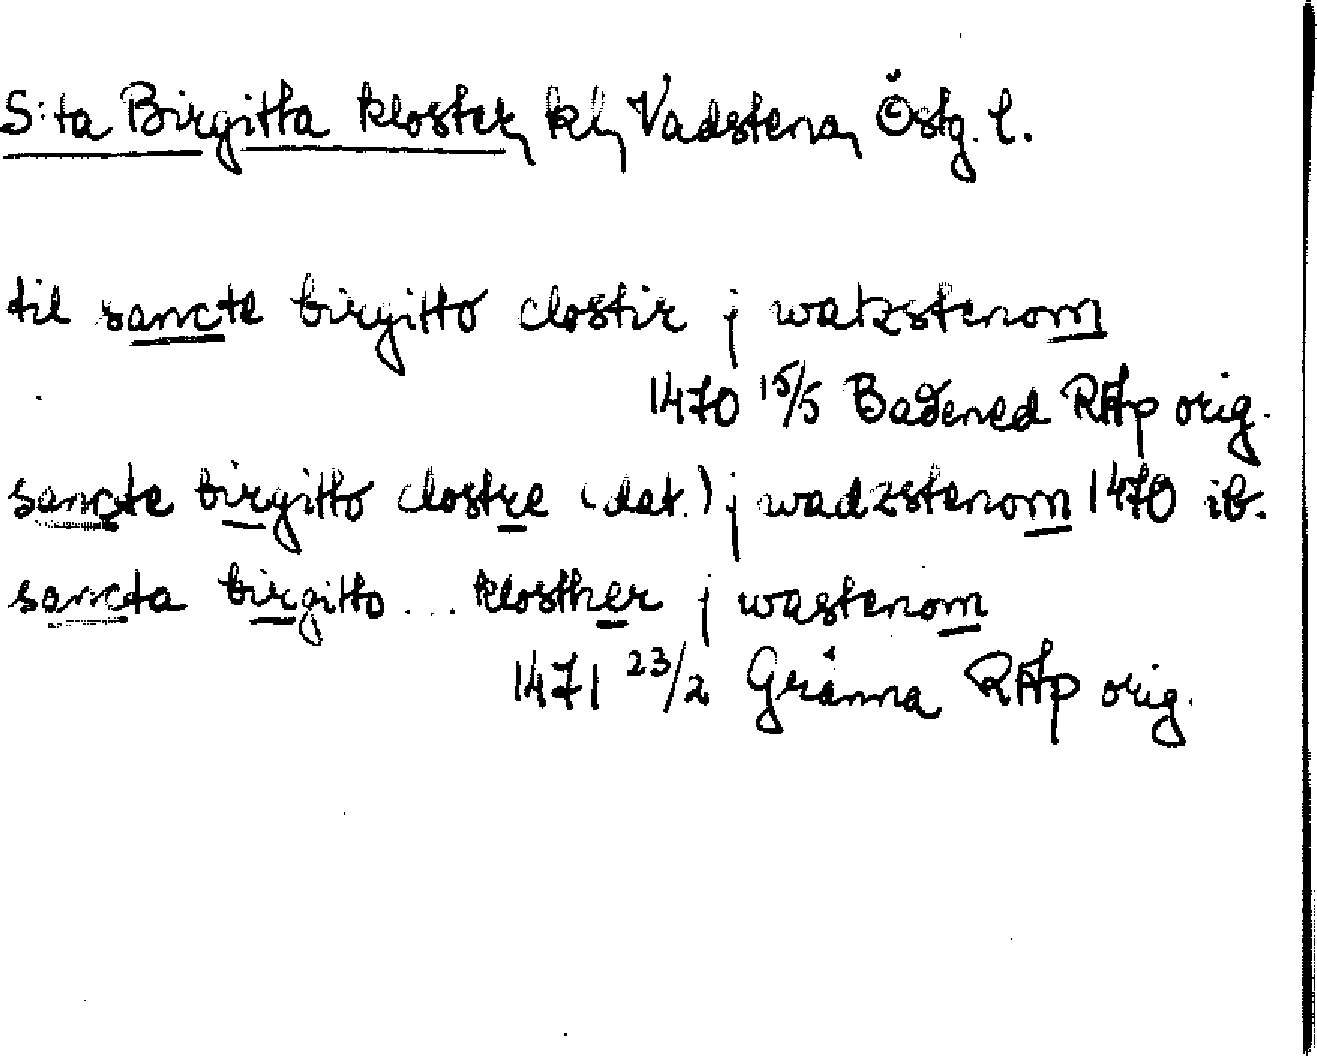 S:ta Birgitta kloster, kl, Vadstena, Östg. l.
til sancte birgitto clostir j watzstenom
1470 15/5 Badened RAp orig.
sancte birgitto clostre (dat.) j wadzstenom 1470 ib.
sancta birgitto... klosther j wastenom
1471 23/2 Gränna RAp orig.